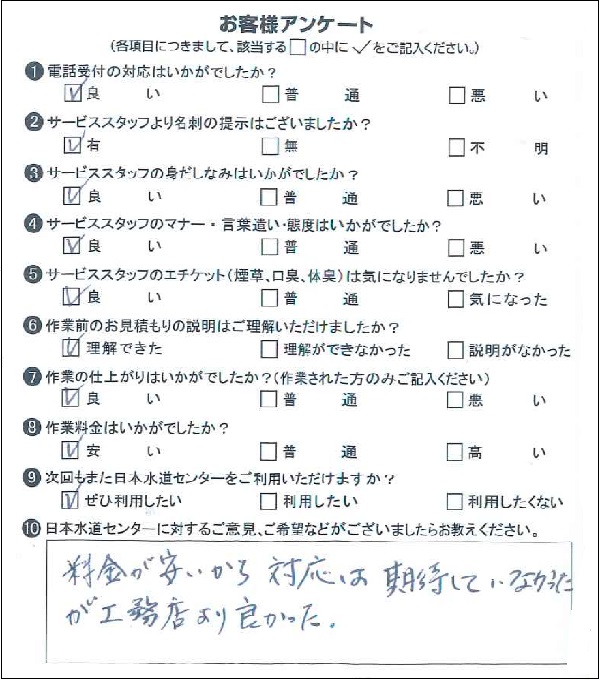 お客様アンケート
(各項目につきまして、該当する□の中に✓をご記入ください。)
❶電話受付の対応はいかがでしたか？
☑良い □普通 □悪い
❷サービススタッフより名刺の提示はございましたか？
☑有 □無 □不明
❸サービススタッフの身だしなみはいかがでしたか？
☑良い □普通 □悪い
❹サービススタッフのマナー・言葉遣い・態度はいかがでしたか？
☑良い □普通 □悪い
❺サービススタッフのエチケット(煙草、口臭、体臭)は気になりませんでしたか？
☑良い □普通 □気になった
❻作業前のお見積もりの説明はご理解いただけましたか？
☑理解できた □理解ができなかった □説明がなかった
❼作業の仕上がりはいかがでしたか？(作業された方のみご記入ください)
☑良い □普通 □悪い
❽作業料金はいかがでしたか？
☑安い □普通 □高い
❾次回もまた日本水道センターをご利用いただけますか？
☑ぜひ利用したい □利用したい □利用したくない
❿日本水道センターに対するご意見、ご希望などがございましたらお教えください。
料金が安いから 対応は 期待していなかった
が工務店より良かった。